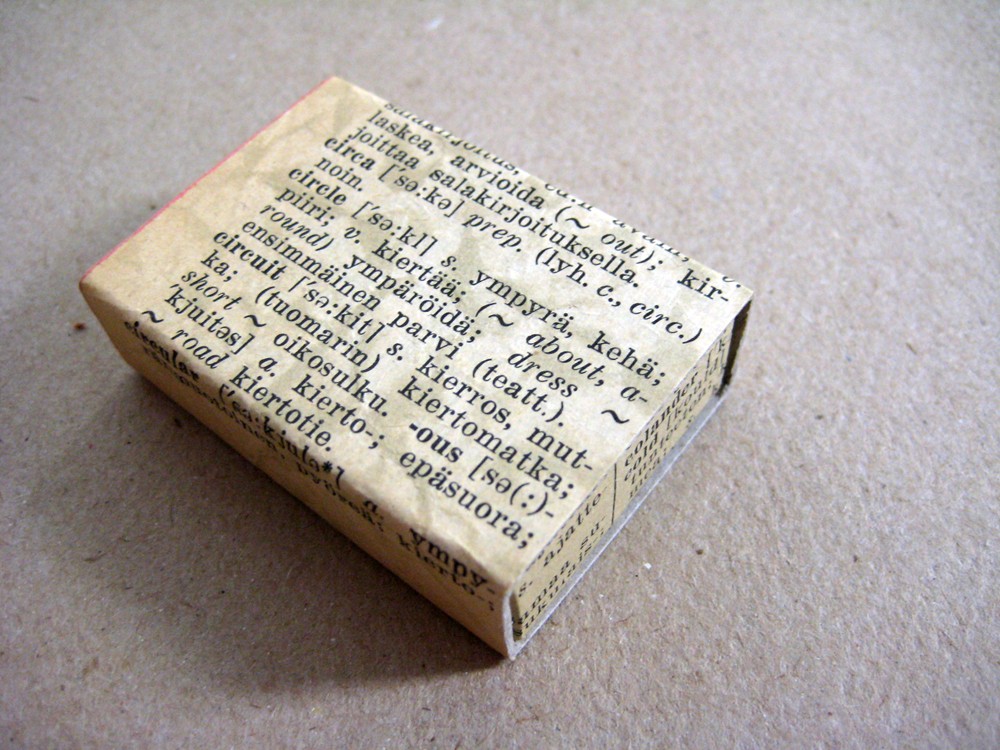 laskea, arvioida (~ out); kir-
joittaa salakirjoituksella.
circa ['sə:kə] prep. (lyh. c., circ.)
noin.
circle ['sə:kl] s. ympyrä, kehä;
piiri; v. kiertää; (~ about, a-
round) ympäröidä; dress ~
ensimmäinen parvi (teatt.).
circuit ['sə:kit] s. kierros, mut-
ka; (tuomarin) kiertomatka;
short ~ oikosulku. -ous [sə(:)-
'kjuitəs] a. kierto-; epäsuora;
~ road kiertotie.
circular ['sə:kjulə*] a. ympy-
kierto-;
s. ajatto